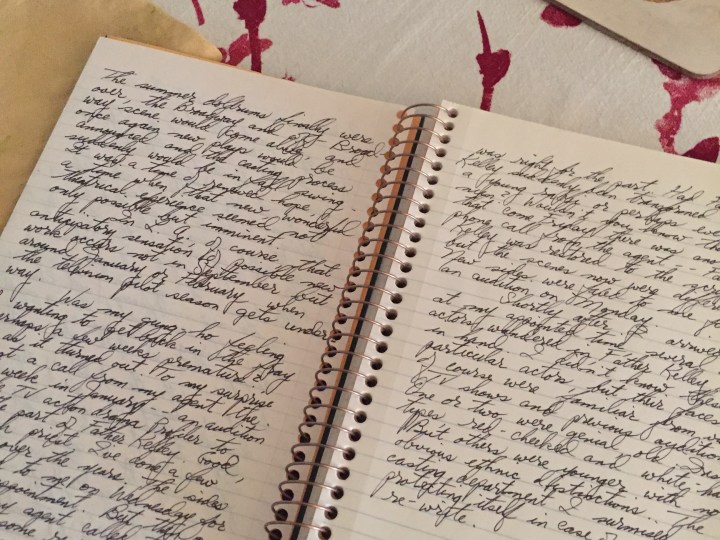 The summer doldrums finally were
over, the Broadway and off Broad
way scene would come alive, and
once again new plays would be
announced and the casting process
suddenly would be in full swing.
It was a time of renewed hope,
a time when that new wonderful
theatrical experience seemed not
only possible but imminent.
In L.A. of course, that
anticipatory sensation of possible new
work occurs not in September but
around January or February when
the television pilot season gets under
way.
was my gung ho feeling
wanting to get back in the fray
a few weeks premature?
as it turned out. To my surprise
a call from my agent the
week in January - an audition
TV action drama Profiler to
part of Father Kelley. Good,
priest I've done a few
over the years. The sides
to me on Wednesday for
appointment. But then
agent called
some
was right for the part. Had
Kelley suddenly been transformed
a young rabbi or perhaps even
nun? Wouldn't you know the
that come Friday there was another
phone call from the agent
Kelley was restored to the script
but the scenes now were different
New sides were sent to me for
an audition on Monday.
Shortly after I arrived
at my appointed time several
actors wandered in, Father Kelley sides
in hand. I didn't know these
particular actors but their faces
of course were familiar from
TV shows and previous auditions
One or two were genial old
types red cheeked and white
But others were younger with no
obvious ethnic distinctions. The
casting department I surmised
protecting itself in case
re-write.